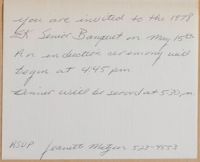 you are invited to the 1978
Senior Banquet on May 15th
An induction ceremony will
begin at 4:45 pm
Dinner will be served at 5:30 pm.
RSVP Jeanette 523-9553